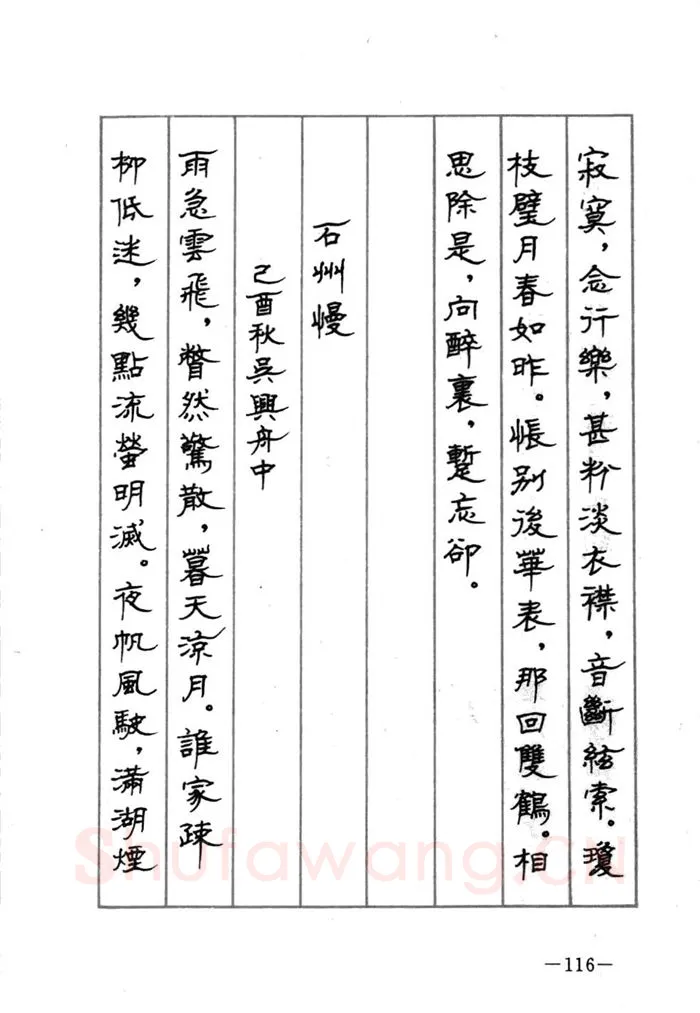 寂寞，念行樂，甚粉淡衣襟，音斷絃索。瓊
枝璧月春如昨。悵别後華表，那回雙鶴。相
思除是，向醉裏，蹔忘卻。
石州慢
己酉秋吳興舟中
雨急雲飛，瞥然驚散，暮天涼月。誰家疎
栁低迷，幾點流螢明滅。夜帆風駛，滿湖煙
Shufawang.CN
—116—